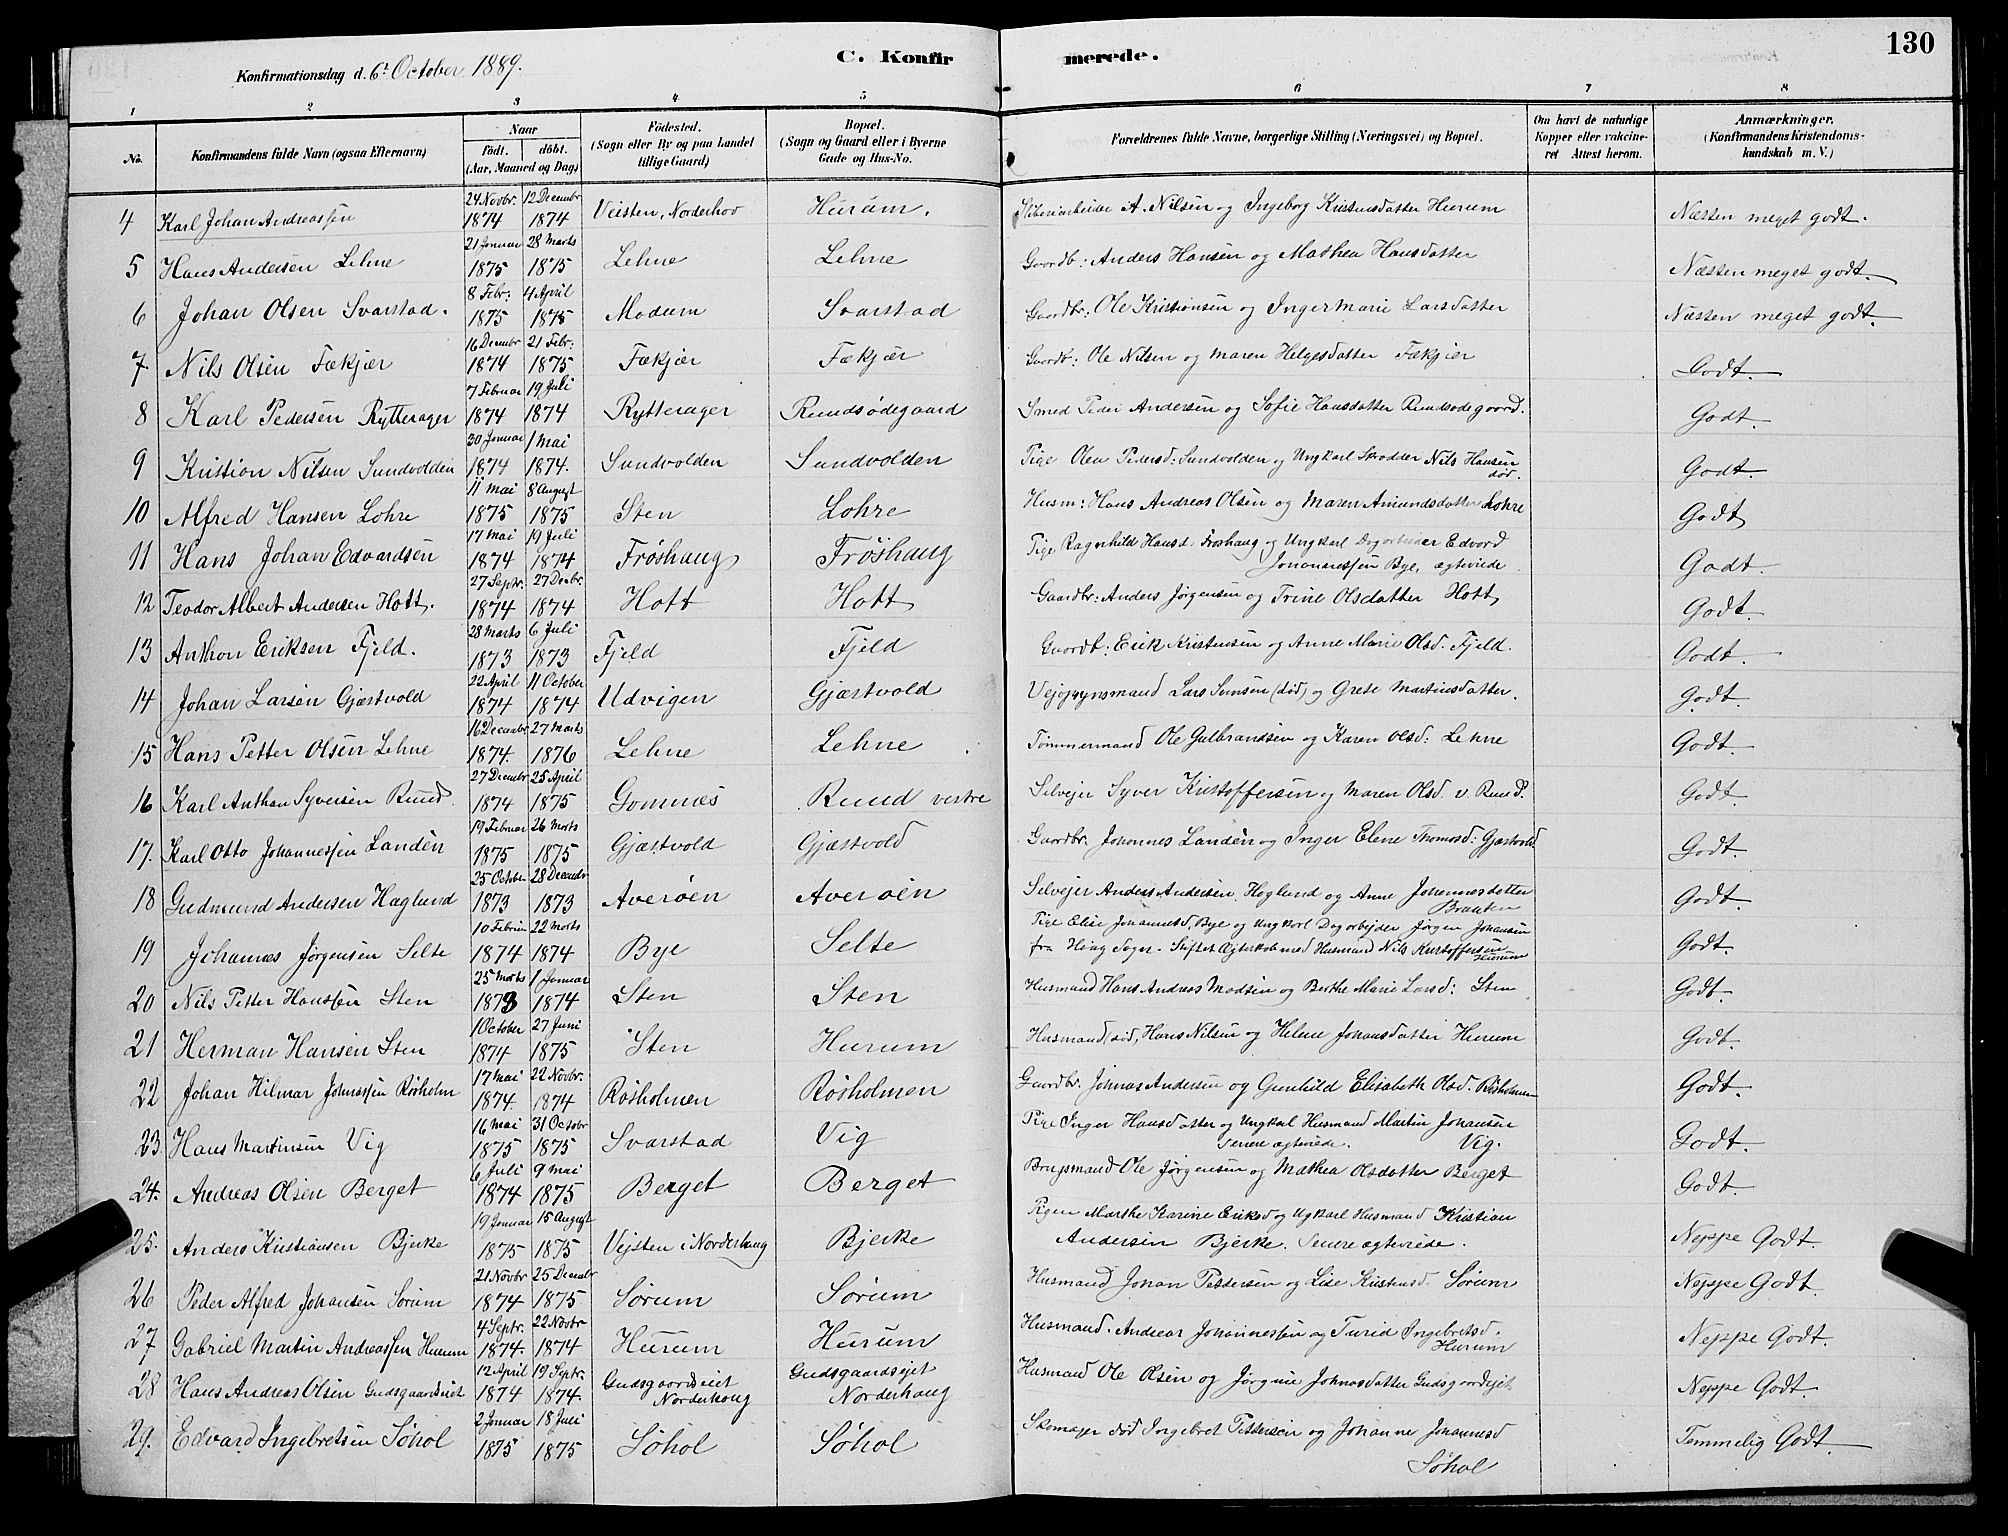 130
Konfirmationsdag d. 6t October 1889.
C. Konfirmerede.
1 2 3 4 5 6 7 8
No. Konfirmandens fulde Navn (ogsaa Efternavn) Naar født. døbt. (Aar, Maaned og Dag) Fødested. (Sogn eller By og paa Landet tillige Gaard) Bopæl. (Sogn og Gaard eller i Byerne Gade og Hus-No. Forældrenes fulde Navne, borgerlige Stilling (Næringsvei) og Bopæl. Om havt de naturlige Kopper eller vakcineret Attest herom. Anmærkninger. (Konfirmandens Kristendomskundskab m. V.)
4 Karl Johan Andreassen 24 Novbr. 1874 12 Decembr 1874 Veisten, Norderhov Hurum. A. Nilsen og Ingeborg Kristensdatter Hurum Næsten meget godt.
5 Hans Andersen Lehne 21 Januar 1875 28 Marts 1875 Lehne Lehne Gaardb: Anders Hansen og Mathea Hansdatter Næsten meget godt.
6 Johan Olsen Svarstad. 8 Febr: 1875 4 April 1875 Modum Svarstad Gaardbr: Ole Kristiansen og Ingermarie Larsdatter Næsten meget godt.
7. Nils Olsen Fækjær 16 Decembr 1874 21 Febr: 1875 Fækjær Fækjær Gaardb: Ole Nilsen og Maren Helgesdatter Fækjær Godt.
8 Karl Pedersen Rytterager 7 Februar 1874 19 Juli 1874 Rytterager Rundsødegaard Smed Peder Andersen og Sofie Hansdatter Rundsødegaard. Godt.
9 Kristian Nilsen Sundvolden 30 Januar 1874 1 Mai 1874. Sundvolden Sundvolden Pige Olea Pedersd: Sundvolden og Ungkarl Skrædder Nils Hansen død. Godt.
10 Alfred Hansen Lohre 11 Mai 1875 8 August 1875 Sten Lohre Husm: Hans Andreas Olsen og Maren Amundsdatter Lohre Godt
11 Hans Johan Edvardsen 17 Mai 1874 19 Juli 1874 Frøshaug Frøshaug Pige Ragnhild Hansd. Frøshaug og Ungkarl Dagarbeider Edvard Johannessen Bye, ægteviede. Godt.
12 Teodor Albert Andersen Hott. 27 Septr. 1874 27 Decbr. 1874 Hott Hott Gaardbr: Anders Jørgensen og Trine Olsdatter Hott Godt.
13 Anthon Eriksen Fjeld. 28 Marts 1873 6 Juli 1873 Fjeld Fjeld Gaardb: Erik Kristensen og Anne Marie Olsd. Fjeld. Godt.
14 Johan Larsen Gjæstvold 22 April 1874 11 October 1874 Udvigen Gjæstvold Lars Simsen (død) og Grete Martinsdatter. Godt.
15 Hans Petter Olsen Lehne 16 Decembr 1874. 27 Marts 1876 Lehne Lehne Tømmermand Ole Gulbrandsen og Karen Olsd: Lehne Godt.
16 Karl Anthan Syversen Rud. 27 Decembr 1874 25 April 1875 Gomnæs Ruud vestre Selvejer Syver Kristoffersen og Maren Olsd. v. Ruud. Godt.
17. Karl Otto Johannessen Landén 19 Februar 1875 26 Marts 1875 Gjæstvold Gjæstvold Gaardbr. Johannes Landén og Inger Elene Thomasd: Gjæstvold. Godt.
18 Gudmund Andersen Haglund 25 October 1873 28 Decembr 1873 Averøen Averøen Selvejer Anders Andersen Haglund og Anne Johannesdatter Braaten Godt.
19 Johannes Jørgensen Selte 10 Februar 1874 22 Marts 1874 Bye Selte Pige Elise Johannesd. Bye og Ungkarl Dagarbejder Jørgen Johansen fra Hing Sogn. Stiftet Egteskab med Husmand Nils Kristoffersen Hurum Godt.
20 Nils Petter Hanssen Sten 25 Marts 1873 1 Januar 1874 Sten Sten Husmand Hans Andreas Madsen og Berthe Marie Larsd: Sten Godt.
21 Herman Hansen Sten 1 October 1874 27 Juni 1875 Sten Hurum Husmand (død) Hans Nilsen og Helene Johansdatter Hurum Godt.
22 Johan Hilmar Johnsssen Røsholm 17 Mai 1874. 22 Novbr. 1874 Røsholmen Røsholmen Gaardbr. Johnas Andersen og Gunhild Elisabeth Olsd. Røsholmen Godt.
23 Hans Martinsen Vig 16 Mai 1875 31 Octobr 1875 Svarstad Vig Pige Inger Hansdatter og Ungkarl Husmand Martin Johansen Senere ægteviede. Vig. Godt.
24. Andreas Olsen Berget 6 Juli 1874 9 Mai 1875 Berget Berget Brugsmand Ole Jørgensen og Mathea Olsdatter Berget Godt.
25. Anders Kristiansen Bjerke 19 Januar 1875 15 August 1875 Vejsten i Norderhaug Bjerke Pigen Marthe Karine Eriksd og Ugkarl Husmand Kristian Andersen Bjerke. Senere ægteviede. Neppe Godt.
26 Peder Alfred Johansen Sørum 21 Novbr 1874 25 Decembr 1875 Sørum Sørum Husmand Johan Pettersen og Lise Kristensd. Sørum Neppe Godt.
27 Gabriel Martin Andreassen Hurum 4 Septr. 1874. 22 Novbr 1874 Hurum Hurum Husmand. Andreas Johannessen og Turid Ingebretsd. Hurum Neppe Godt.
28 Hans Andreas Olsen Gudsgaardseiet 12 April 1874 19 Septr. 1874. Gudsgaardseiet Norderhaug Gudsgaardsejet Norderhaug Husmand Ole Olsen og Jørgine Johnasdatter Gudsgaardejet Neppe Godt.
29. Edvard Ingebretsen Søhol 2 Januar 1875 18 Juli 1875 Søhol Søhol Skomager død Ingebret Pettersen og Johanne Johannesd Søhol Temmelig Godt.